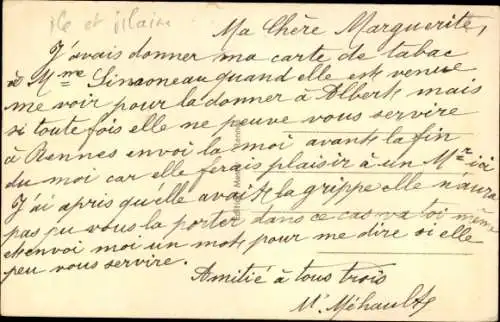 ile et vilaine
Ma Chère Marguerite,
J'avais donner ma carte de tabac
à Mme Simoneau quand elle est venue
me voir pour la donner à Albert mais
si toute fois elle ne peuve vous servire
à Rennes envoi la moi avant la fin
du moi car elle ferais plaisir à un Mr ici
J'ai apris qu'elle avait la grippe elle n'aura
pas pu vous la porter dans ce cas va toi même
et envoi moi un mot pour me dire si elle
peu vous servire.
Amitié à tous trois
Mr Méhault